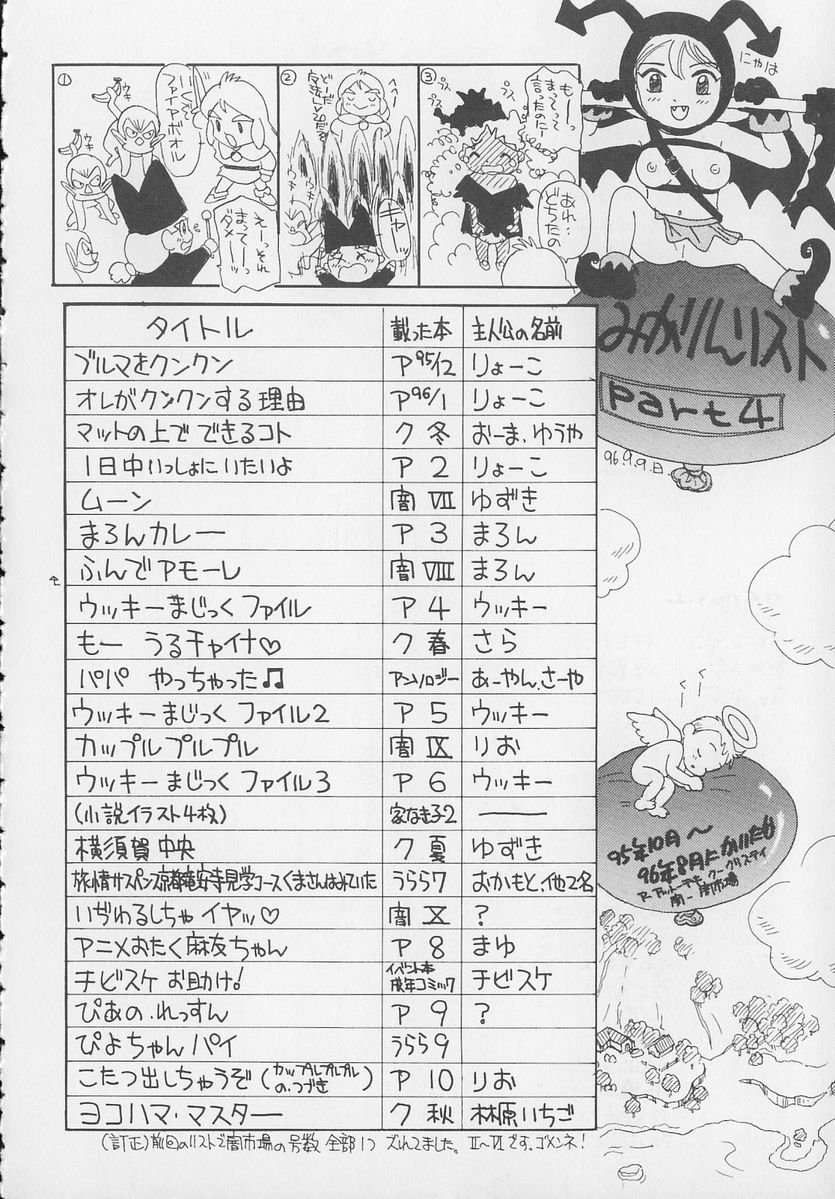 ①
いくぞ〜
ファイヤボオル
ウキ
ウキ
えーっそれ
まってーーっ
ダメーーッ
②
へへー
どーだ
魔法LV20だぞ
ギャーッ
③
もーーっ
まってって
言ったのにー
ブスブス
おれ…
どちたの
にゃは
みかりんリスト
part4
96.9.9.日
タイトル 載った本 主人公の名前
ブルマをクンクン ア95/12 りょーこ
オレがクンクンする理由 ア96/1 りょーこ
マットの上で できるコト ク 冬 おーま、ゆうや
1日中いっしょにいたいよ ア 2 りょーこ
ムーン 闇 VII ゆずき
まろんカレー ア 3 まろん
ふんでアモーレ 闇 VIII まろん
ウッキーまじっく ファイル ア 4 ウッキー
もー うるチャイナ♡ ク 春 さら
パパ やっちゃった♫ アンソロジー あーやん、さーや
ウッキーまじっく ファイル2 ア 5 ウッキー
カップルプルプル 闇 IX りお
ウッキーまじっく ファイル3 ア 6 ウッキー
(小説イラスト4枚) 家なき子2 ——
横須賀中央 ク 夏 ゆずき
旅情サスペンス京都竜安寺見学コースくまさんはみていた うらら7 おかもと、他2名
いぢわるしちゃ イヤッ♡ 闇 X ?
アニメおたく麻友ちゃん ア 8 まゆ
チビスケ お助け! イベント本 成年コミック チビスケ
ぴあの.れっすん ア 9 ?
ぴよちゃん パイ うらら9
こたつ出しちゃうぞ(カップルプルプルの・つづき) ア 10 りお
ヨコハマ・マスター ク 秋 林原いちご
95年10月〜
96年8月にかいたもの
ア―アットーテキ ク―クリスティ
闇―闇市場
(訂正)前回のリストで闇市場の号数 全部1つ ズレてました。 II〜VIです、ゴメンネ!